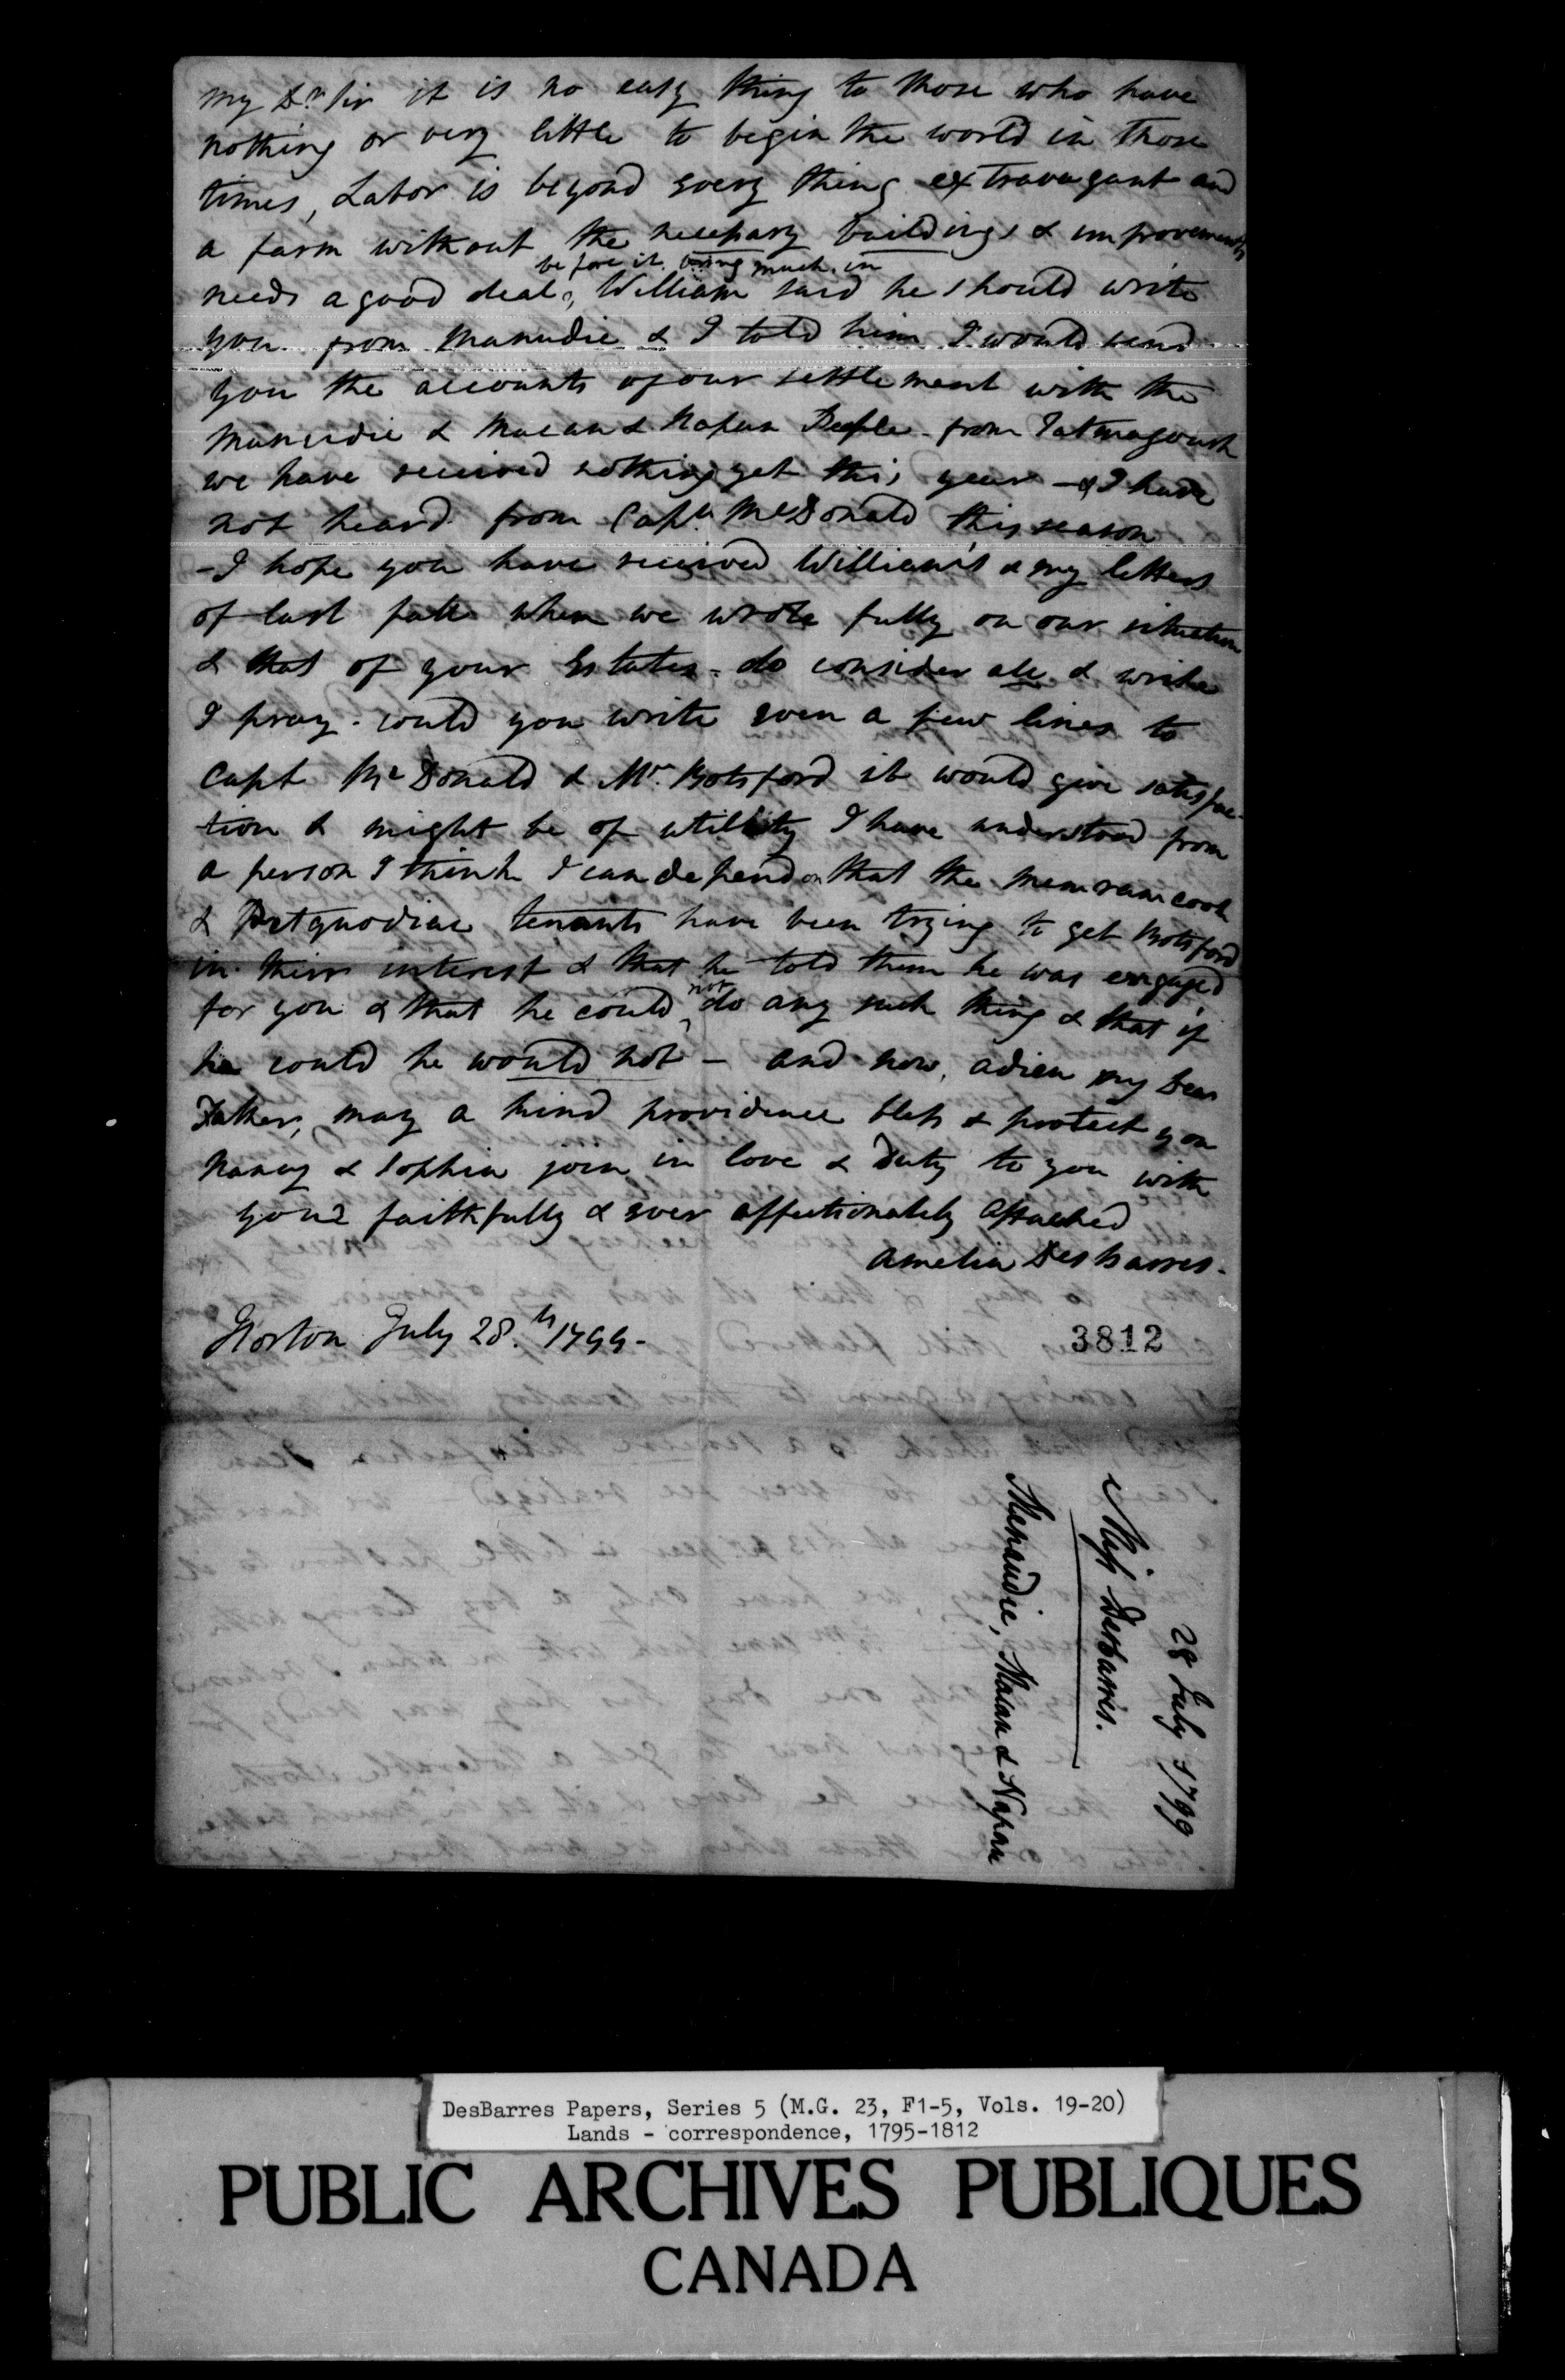 my Dr Sir it is no easy thing to those who have
nothing or very little to begin the world in those
times, Labor is beyond every thing extravagant and
a farm without the necessary buildings & improvements
before it bring much in
needs a good deal, William said he should write
you from Manudie & I told him I would send
you the accounts of our settlement with the
Manudie & Macan & Napan People - from Tatmagoush
we have received nothing yet this year - & I have
not heard from Captn McDonald this season
- I hope you have received William's & my letters
of last fall when we wrote fully on our situation
& that of your Estates - do consider all & write
I pray - could you write even a few lines to
Capt McDonald & Mr Botsford it would give satisfac-
tion & might be of utility I have understood from
a person I think I can depend on that the Memramcook
& Petquodiac tenants have been trying to get Botsford
in their interest & that he told them he was engaged
for you & that he could not do any such thing & that if
he could he would not - and now, adieu my Dear
Father, may a kind providence bless & protect you
Nancy & Sophia join in love & Duty to you with
your faithfully & ever affectionately attached
Amelia DesBarres -
Horton July 28.th 1799 -
3812
28 July 1799
Miss Desbarres.
Menaudie, Macan & Napan
DesBarres Papers, Series 5 (M.G. 23, F1-5, Vols. 19-20)
Lands - correspondence, 1795-1812
PUBLIC ARCHIVES PUBLIQUES
CANADA